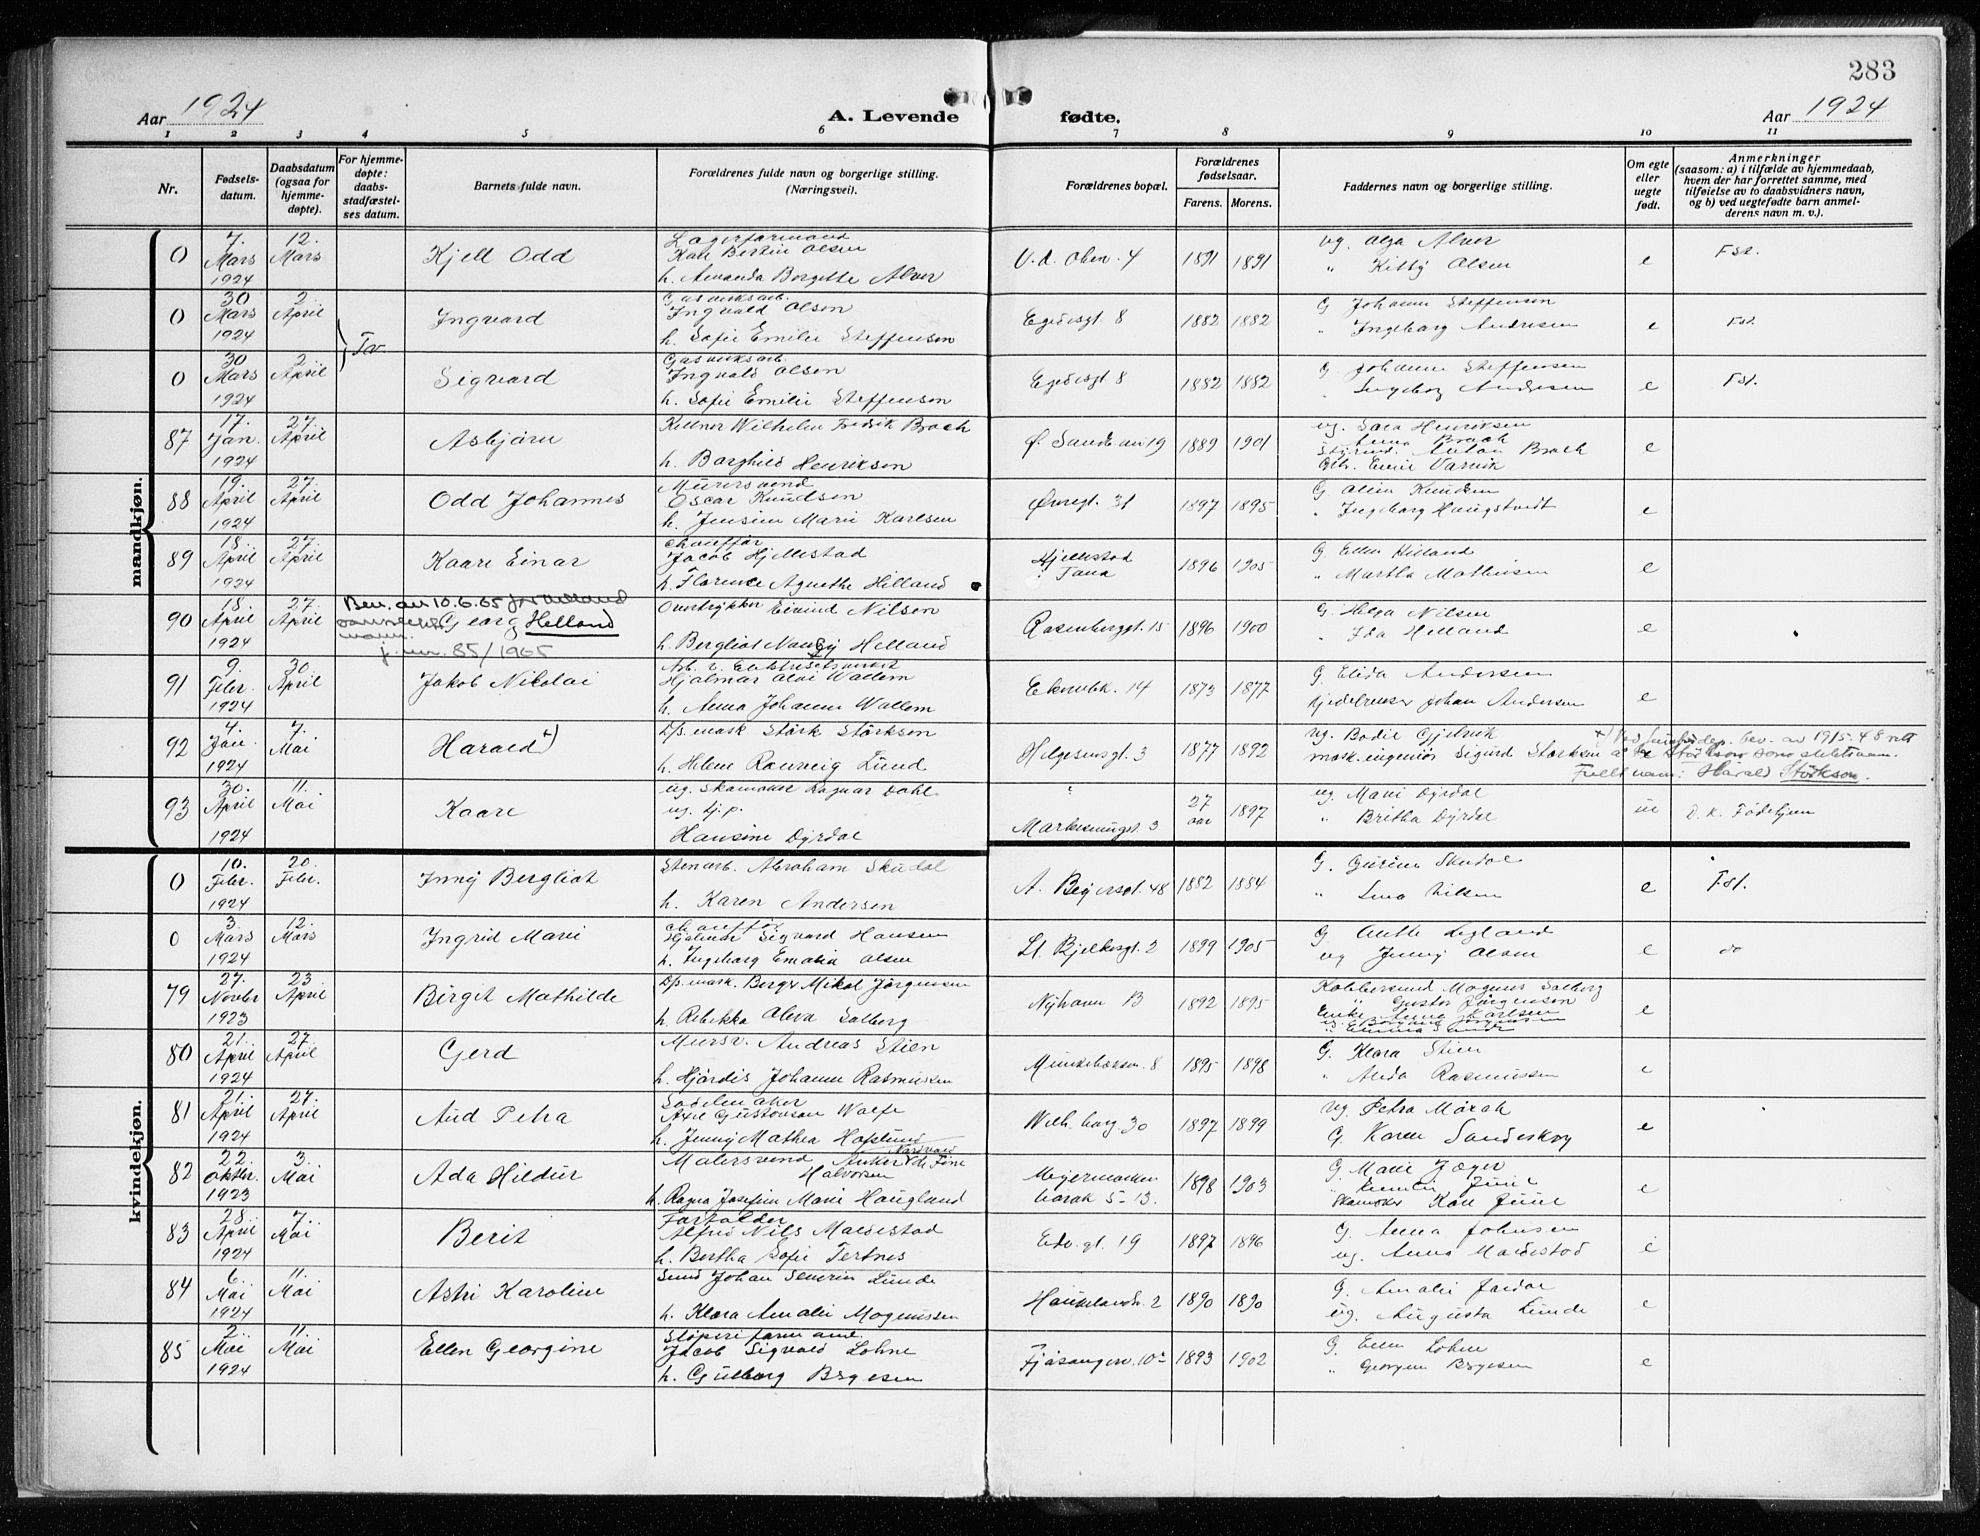 283
Aar 1924
A. Levende fødte.
Aar 1924
1 2 3 4 5 6 7 8 9 10 11
Nr.
Fødsels-
datum.
Daabsdatum
(ogsaa for
hjemme-
døpte).
For hjemme-
døpte:
daabs-
stadfæstel-
ses datum.
Barnets fulde navn.
Forældrenes fulde navn og borgerlige stilling.
(Næringsvei).
Forældrenes bopæl.
Forældrenes
fødselsaar.
Farens. Morens.
Faddernes navn og borgerlige stilling.
Om egte
eller
uegte
født.
Anmerkninger
(saasom: a) i tilfælde av hjemmedaab,
hvem der har forrettet samme, med
tilføielse av to daabsvidners navn,
og b) ved uegtefødte barn anmel-
derens navn m. v.).
mandkjøn.
0 7. Mars 1924 12. Mars Kjell Odd Lagerformand Karl Bertin Olsen h. Amanda Bergette Alver V.d. Olsen. 4 1891 1891 ug. Olga Alver " Kitty Olsen e Fst.
0 30 Mars 1924 2. April Ingvard Gasverksarb. Ingvald Olsen h. Sofie Emilie Steffensen Egedesgt 8 1882 1882 G Johanne Steffensen " Ingeborg Andresen e Fst.
Tv
0 30 Mars 1924 2 April Sigvard Gasverksarb. Ingvald Olsen h. Sofie Emilie Steffenson Egedesgt 8 1882 1882 G Johanne Steffensen " Ingeborg Andresen e Fst.
87 17. Jan. 1924 27. April Asbjørn Kellner Wilhelm Fredrik Broch h. Borghild Henriksen Ø. Sandvikvei 19 1889 1901 ug. Sara Henriksen " Anna Broch Anton Broch Emil e
88 19. April 1924 27. April Odd Johannes Murersvend Oscar Knudsen h. Jensine Marie Karlsen Ørnegt. 31 1897 1895 G Knudsen " Ingeborg Haugstvedt e
89 18. April 1924 27. April Kaare Einar Chauffør Jacob Hjellestad h. Florence Agnethe Hilland Hjellestad i Fana 1896 1905 G. Ellen Hilland " Martha Mathisen e
90 18. April 1924 27. April Bev. av 10.6.65 for Helland som slektsnavn. j.nr. 85/1965 Georg Helland Overtrykker Eivind Nilsen h. Bergliot Nancy Helland Rosenbergt. 15 1896 1900 G. Helga Nilsen " Ida Helland e
91 9. Febr. 1924 30. April Jakob Nikolai Arb. v. Elektrisitetsverket Hjalmar Olai Wallem h. Anna Johanne Wallem 14 1873 1877 G. Elida Andersen Kjedelrenser Johan Andersen e
92 4. Jan. 1924 7. Mai Harald +) Dps. mask Störk Störksen h. Helene Rannveig Lund Helgesensgt. 3 1877 1892 ug. Bodil Gjelsvik mask. ingeniør Sigurd Störksen e +) bev. av 1915.48 rett Störkson som slektsnavn. Fullt navn: Harald Störkson.
93 30. April 1924 11. Mai Kaare ug. Skomaker Ragnar Dahl ug. tj.p. Hansine Dyrdal 3 27 aar 1897 ug. Marie Dyrdal " Britha Dyrdal ue D. K. Fødehjem
kvindekjøn.
0 10. Febr. 1924 20. Febr. Inny Bergliot Stenarb. Abraham Skudal h. Karen Andersen A. Beyersgt. 48 1882 1884 G. Gurine Skudal " Lina Nilsen e Fst.
0 3. Mars 1924 12. Mars Ingrid Marie Chauffør Hjalmar Sigvard Hansen h. Ingeborg Emalia Olsen Lt. Bjelkesgt. 2 1899 1905 G Anette Legland ug Jenny Olsen e do
79 27. Novbr 1923 23. April Birgit Mathilde Dps. mask. Berge Mikal Jörgensen h. Rebekka Oleva Solberg Nyhavn B 1892 1895 Magnus Solberg " Gustav Jörgenson Enke Anna Karlsen e
80 21. April 1924 27. April Gerd Mursv. Andreas Stien h. Hjördis Johanne Rasmussen Munkebotsen. 8 1895 1898 G. Klara Stien " Anda Rasmussen e
81 21. April 1924 27. April Aud Petra Sadelmaker Axel Gustavson Wolfe h. Jenny Mathea Hoplund Wilh. borg. 30 1897 1899 ug. Petra Mörch G. Karen Sandeskog e
82 22. Oktbr. 1923 3. Mai Ada Hildur Malersvend Halvorsen h. Ragna Josefine Marie Haugland Meyermarken barak 5-13. 1898 1903 G. Marie Jæger Juul Skomaker Karl Juul e
83 28. April 1924 7. Mai Berit Forfalder Alfred Nils Maldestad h. Bertha Sofie Tertnes Edv. gt. 19 1897 1896 G. Anna Johnsen ug. Anna Maldestad e
84 6. Mai 1924 11. Mai Astri Karoline Smed Johan Severin Lunde h. Klara Amalie Mognussen Haukelandsv. 2 1890 1890 G. Amalie Jordal ug. Augusta Lunde e
85 2. Mai 1924 11. Mai Ellen Georgine Støperiformand Jacob Sigvald Lohne h. Gulborg Børgesen Fjösangerv. 10a 1893 1902 G. Ellen Lohne " Georgine Börgesen e